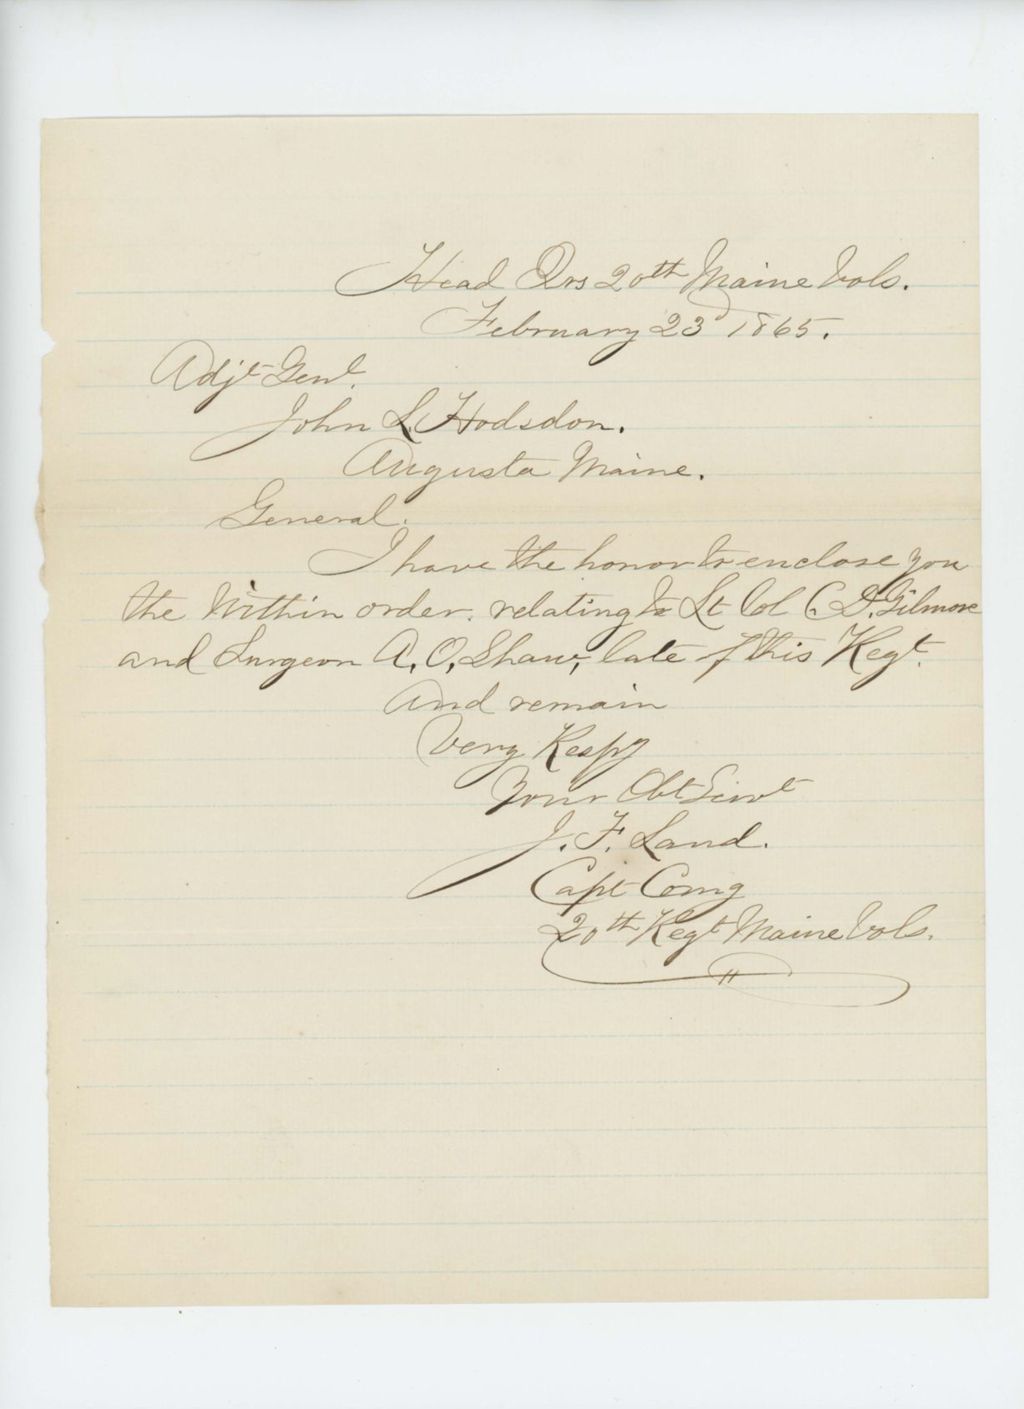 Head Qrs 20th Maine Vols.
February 23d 1865.
Adjt Genl.
John L. Hodsdon.
Augusta Maine.
General.
I have the honor to enclose you
the Within order. relating to Lt Col C. D. Gilmore
and Surgeon A. O. Shaw, late of this Regt.
And remain
Very Respy
Your Obt Servt
J. F. Land.
Capt Comg
20th Regt Maine Vols.